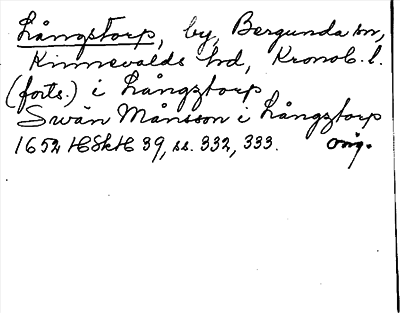 Långstorp, by, Bergunda sn,
Kinnevalds hd, Kronob. l.
(forts.) i Långztorp
Swän Månsson i Långztorp
1652 HSkH 39, ss. 332, 333. orig.